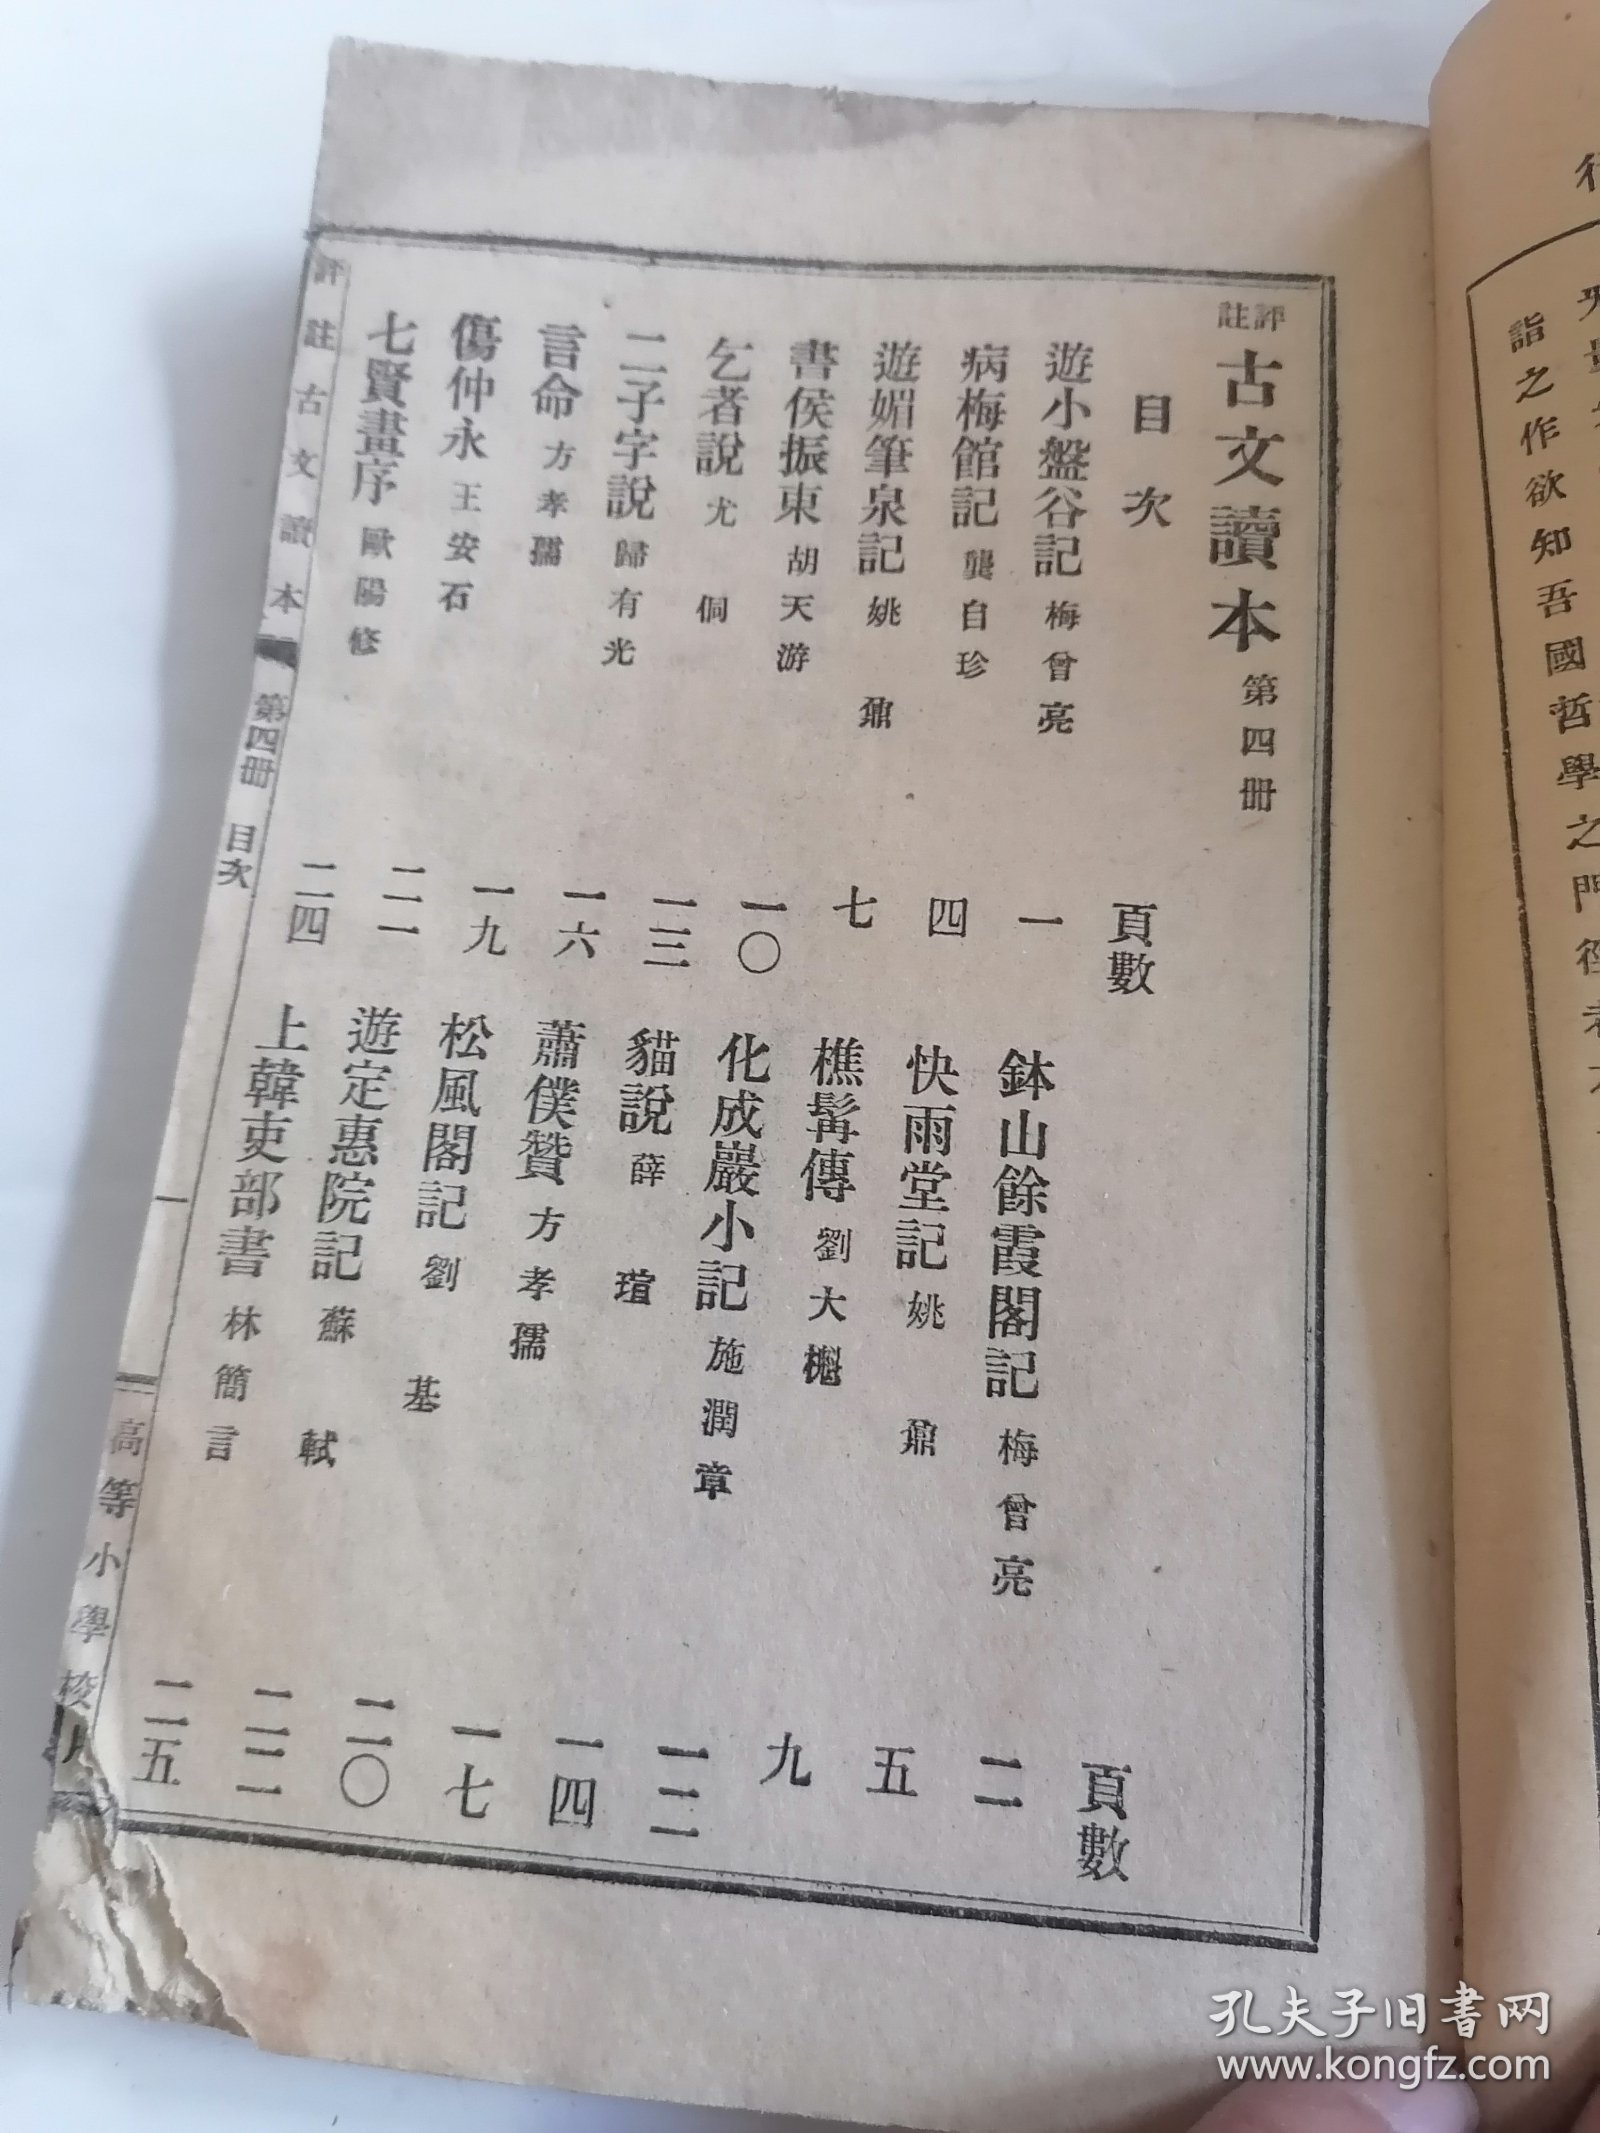 評註古文讀本 第四冊
目次 頁數 頁數
遊小盤谷記 梅曾亮 一
鉢山餘霞閣記 梅曾亮 二
病梅館記 龔自珍 四
快雨堂記 姚鼐 五
遊媚筆泉記 姚鼐 七
樵髯傳 劉大櫆 九
書侯振東 胡天游 一〇
化成巖小記 施潤章 一二
乞者說 尤侗 一三
貓說 薛瑄 一四
二子字說 歸有光 一六
蕭僕贊 方孝孺 一七
言命 方孝孺 一九
松風閣記 劉基 二〇
傷仲永 王安石 二一
遊定惠院記 蘇軾 二二
七賢畫序 歐陽修 二四
上韓吏部書 林簡言 二五
評註古文讀本 第四冊 目次 一 高等小學校用
詣之作欲知吾國哲學之門徑者
孔夫子旧书网
www.kongfz.com